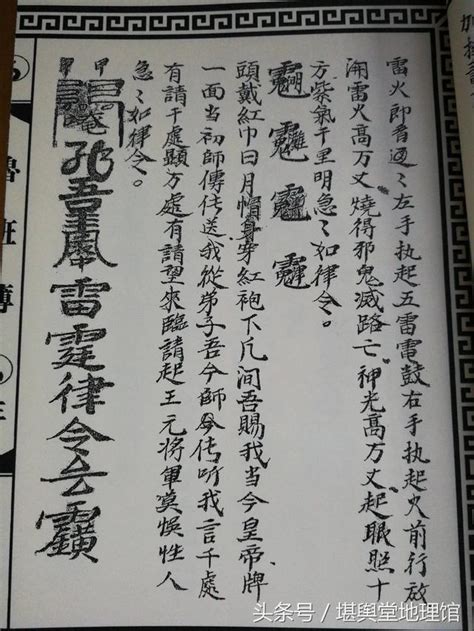 雷火郎君過〻左手执起五雷電鼓右手执起火前行放
洞雷火高万丈燒得邪鬼滅路亡神光高万丈起眼照十
方紫氣千里明急〻如律令。
頭戴紅巾日月帽身穿紅袍下凡间吾賜我當今皇帝牌
一面當初師傳佉送我從弟子吾今師今佉听我言千處
有請千處顯方處有請望來臨請起王元將軍莫悮性人
急〻如律令。
吾
雷霆律令
魯班
头条号／堪舆堂地理馆